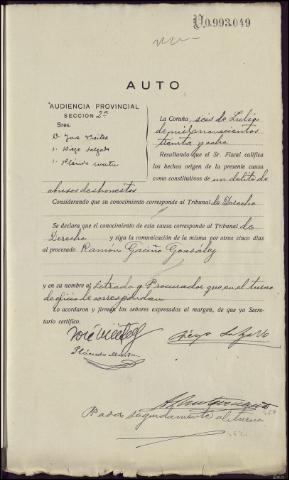 P.0.993.049
AUTO
AUDIENCIA PROVINCIAL
SECCION 2ª
Sres.
D. José Viteles
" Diego Salgado
" Plácido
La Coruña, seis de Julio
de mil novecientos
treinta y ocho
Resultando que el Sr. Fiscal califica
los hechos origen de la presente causa
como constitutivos de un delito de
abusos deshonestos
Considerando que su conocimiento corresponde al Tribunal de Derecho
Se declara que el conocimiento de esta causa corresponde al Tribunal de
Derecho y siga la comunicación de la misma por otros cinco días
al procesado Ramón Gaciño González
y en su nombre al Letrado y Procurador que, en el turno
de oficio le correspondan
Lo acordaron y firman los señores expresados al margen, de que yo Secre-
tario certifico.
Diego Salgado
Pasa seguidamente al turno